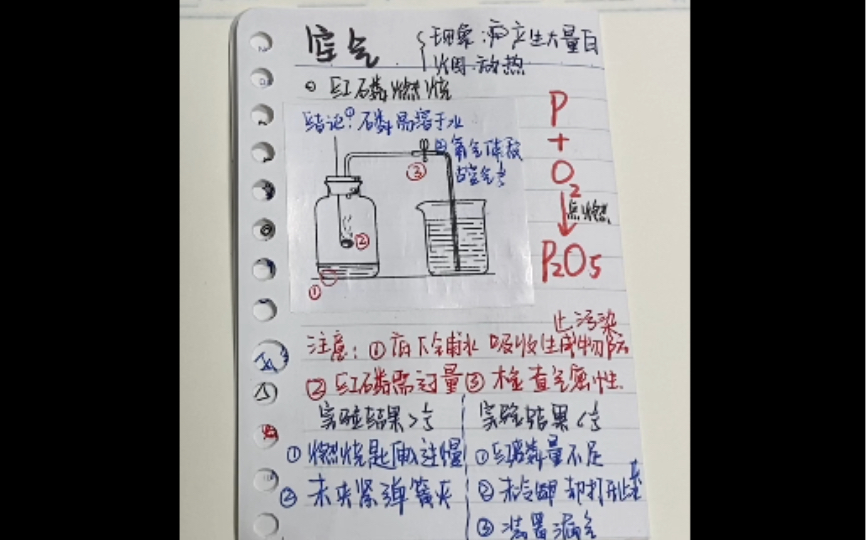 空气
现象:产生大量白
烟.放热
① 红磷燃烧
结论:①磷易溶于水
②氧气体积
占空气1/5
P
+
O₂
↓点燃
P₂O₅
③
②
①
止污染
注意:①瓶下铺水 吸收生成物防
②红磷需过量③检查气属性
实验结果>1/5
①燃烧匙伸入过慢
②未夹紧弹簧夹
实验结果<1/5
①红磷量不足
②未冷却却打开止夹
③装置漏气